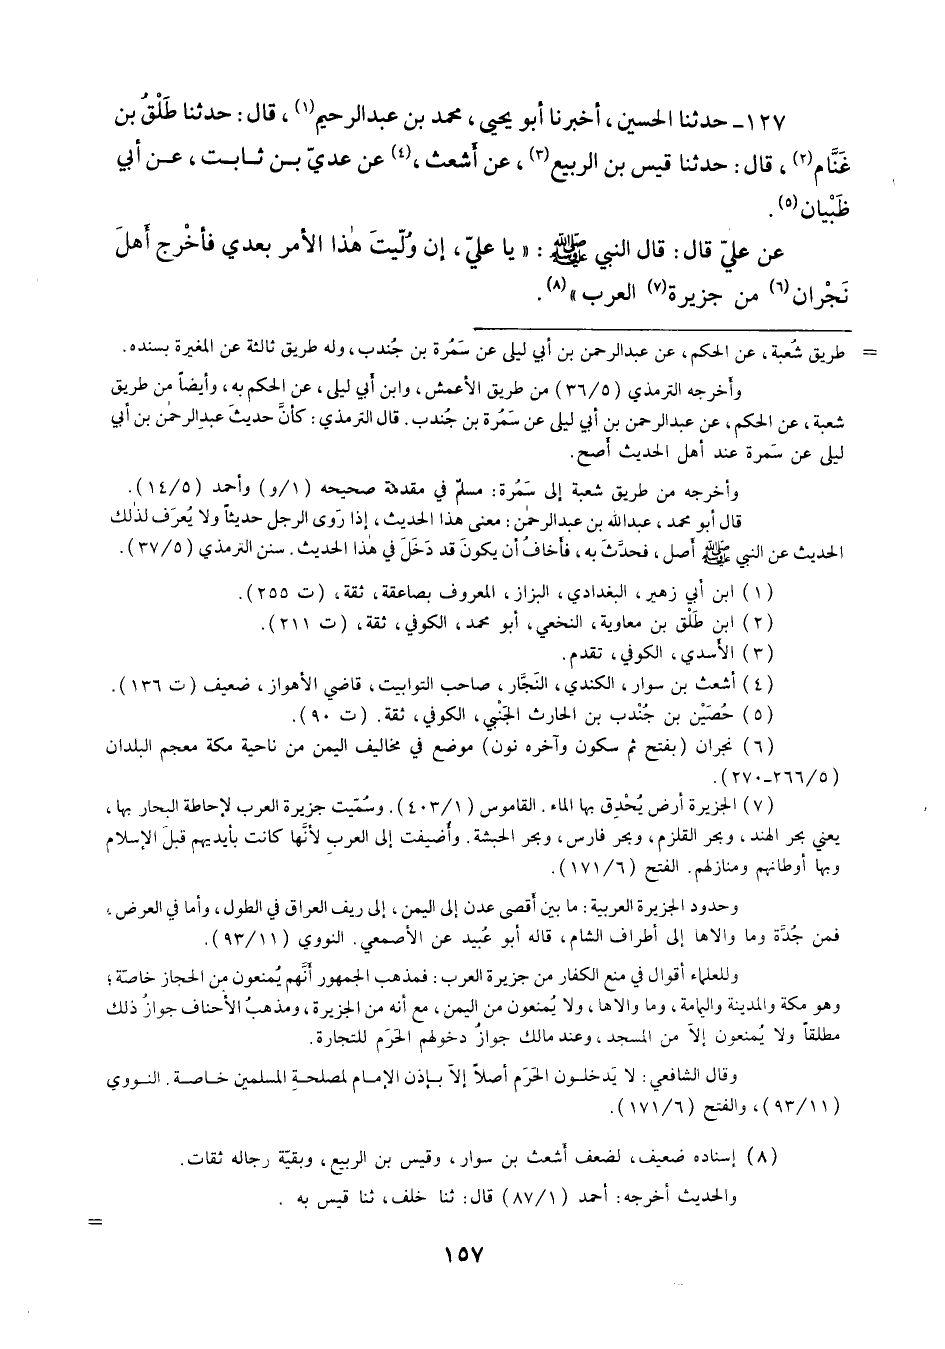 ١٢٧ـ حدثنا الحسين، أخبرنا أبو يحيى، محمد بن عبدالرحيم(١)، قال: حدثنا طَلْقُ بن
غَنَّام(٢)، قال: حدثنا قيس بن الربيع(٣)، عن أَشعث،(٤) عن عديّ بـن ثـابـت، عـن أبي
ظَبْيان(٥).
عن عليّ قال: قال النبي ﷺ: « يا عليّ، إن وُلّيتَ هٰذا الأمر بعدي فأخْرج أَهلَ
نَجْران(٦) من جزيرة(٧) العرب »(٨).
= طريق شُعبة، عن الحكم، عن عبدالرحمن بن أبي ليلى عن سَمُرة بن جُندب، وله طريق ثالثة عن المغيرة بسنده.
وأخرجه الترمذي (٣٦/٥) من طريق الأعمش، وابن أبي ليلى، عن الحكم به، وأيضاً من طريق
شعبة، عن الحكم، عن عبدالرحمن بن أبي ليلى عن سَمُرة بن جُندب. قال الترمذي: كأنَّ حديثَ عبدِالرحمٰن بن أبي
ليلى عن سَمرة عند أهل الحديث أَصح.
وأخرجه من طريق شعبة إلى سَمُرة: مسلمٌ في مقدمة صحيحه (١/و) وأحمد (١٤/٥).
قال أبو محمد، عبدالله بن عبدالرحمٰن: معنى هذا الحديث، إذا رَوى الرجل حديثاً ولا يُعرَف لذٰلك
الحديث عن النبي ﷺ أَصل، فحدَّثَ به، فأخافُ أن يكونَ قد دَخَلَ في هٰذا الحديث. سنن الترمذي (٣٧/٥).
(١) ابن أبي زهير، البغدادي، البزاز، المعروف بصاعقة، ثقة، (ت ٢٥٥).
(٢) ابن طَلْق بن معاوية، النخعي، أبو محمد، الكوفي، ثقة، (ت ٢١١).
(٣) الأسدي، الكوفي، تقدم.
(٤) أشعث بن سوار، الكندي، النجَّار، صاحب التوابيت، قاضي الأهواز، ضعيف (ت ١٣٦).
(٥) حُصَيْن بن جُنْدب بن الحارث الجَنْبي، الكوفي، ثقة. (ت ٩٠).
(٦) نجران (بفتح ثم سكون وآخره نون) موضع في مخاليف اليمن من ناحية مكة معجم البلدان
(٢٦٦/٥ـ٢٧٠).
(٧) الجزيرة أرض يُحْدِق بها الماء. القاموس (٤٠٣/١). وسُمّيت جزيرة العرب لإحاطة البحار بها،
يعني بحر الهند، وبحر القلزم، وبحر فارس، وبحر الحبشة. وأُضيفت إلى العرب لأنَّها كانت بأيديهم قبلَ الإسلام
وبها أوطانهم ومنازلهم. الفتح (١٧١/٦).
وحدود الجزيرة العربية: ما بين أقصى عدن إلى اليمن، إلى ريف العراق في الطول، وأما في العرض،
فمن جُدَّة وما والاها إلى أطراف الشام، قاله أبو عُبيد عن الأصمعي. النووي (٩٣/١١).
وللعلماء أقوال في منع الكفار من جزيرة العرب: فمذهب الجمهور أنَّهم يُمنعون من الحجاز خاصّة؛
وهو مكة والمدينة واليمامة، وما والاها، ولا يُمنعون من اليمن، مع أنه من الجزيرة، ومذهبُ الأحناف جوازُ ذلك
مطلقاً ولا يُمنعون إلاَّ من المسجد، وعند مالك جوازُ دخولهم الحَرَم للتجارة.
وقال الشافعي: لا يَدخلـون الحَرَم أصلاً إلاَّ بـإذن الإمـام لمصلحة المسلمين خـاصـة. النـووي
(٩٣/١١)، والفتح (١٧١/٦).
(٨) إسناده ضعيف، لضعف أَشعث بن سوار، وقيس بن الربيع، وبقيّة رجاله ثقات.
والحديث أخرجه: أحمد (٨٧/١) قال: ثنا خلف، ثنا قيس به .
=
١٥٧